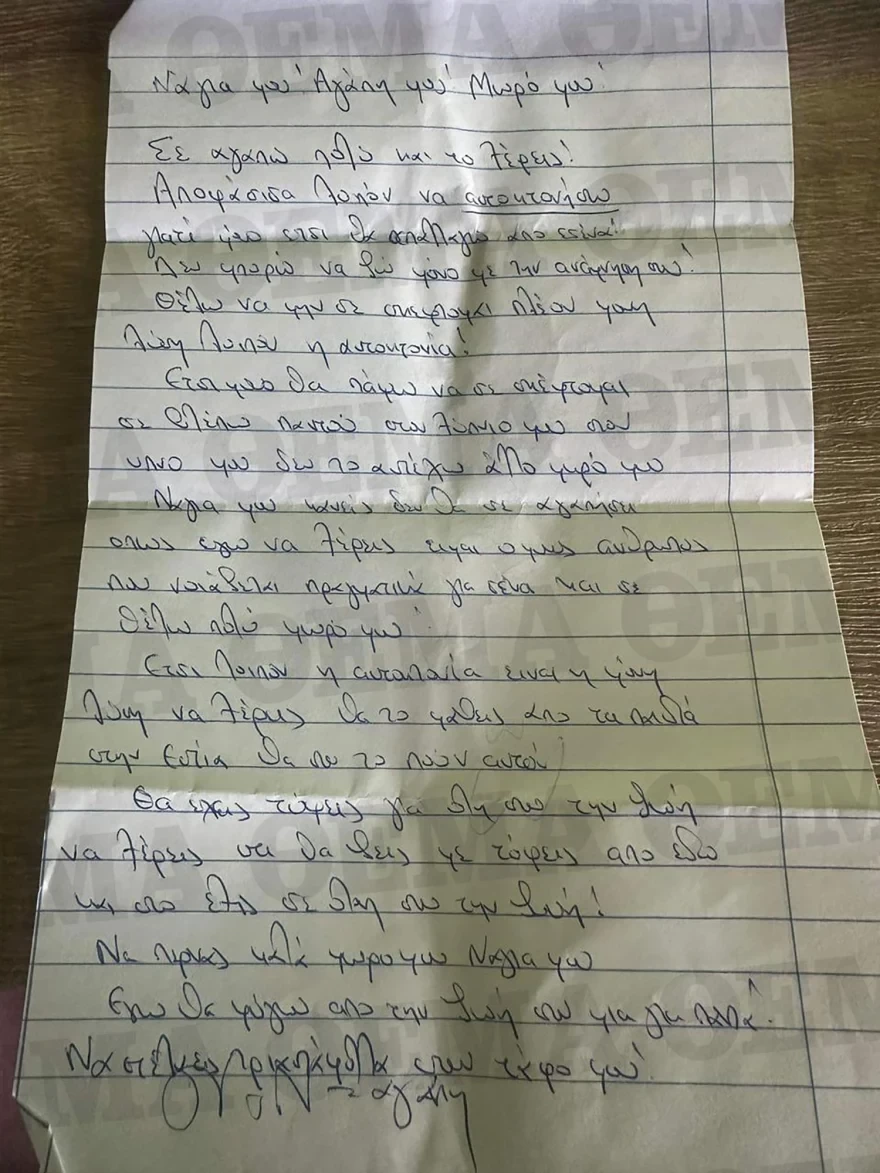 Νάγια μου! Αγάπη μου! Μωρό μου!
Σε αγαπώ πολύ και το ξέρεις!
Αποφάσισα λοιπόν να αυτοκτονήσω
γιατί μόνο έτσι θα απαλλαγώ από εσένα!
Δεν μπορώ να ζω μόνο με την ανάμνηση σου!
Θέλω να μην σε σκέφτομαι πλέον μονη
λύση λοιπόν η αυτοκτονία!
Ετσι μονο θα πάψω να σε σκέφτομαι
σε βλέπω παντού στο ξύπνιο μου στον
υπνο μου δεν το αντέχω άλλο μωρό μου
Νάγια μου κανείς δεν θα σε αγαπήσει
οπως εγω να ξέρεις ειμαι ο μονος ανθρωπος
που νοιάζεται πραγματικά για σένα και σε
θέλω πολύ μωρό μου!
Ετσι λοιπον η αυτοκτονία ειναι η μόνη
λύση να ξέρεις θα το μάθεις απο τα παιδιά
στην Εστία θα σου το πούν αυτοί
Θα έχεις τύψεις για όλη σου την ζωή
να ξέρεις να θα ζεις με τύψεις απο εδω
και στο εξής σε όλη σου την ζωή!
Να περνας καλά μωρο μου Νάγια μου
Εγω θα φύγω απο την ζωή σου μια για πάντα!
Να στείλεις τριαντάφυλλα στον τάφο μου!
αγάπη
ΘΕΜΑ ΘΕΜΑ